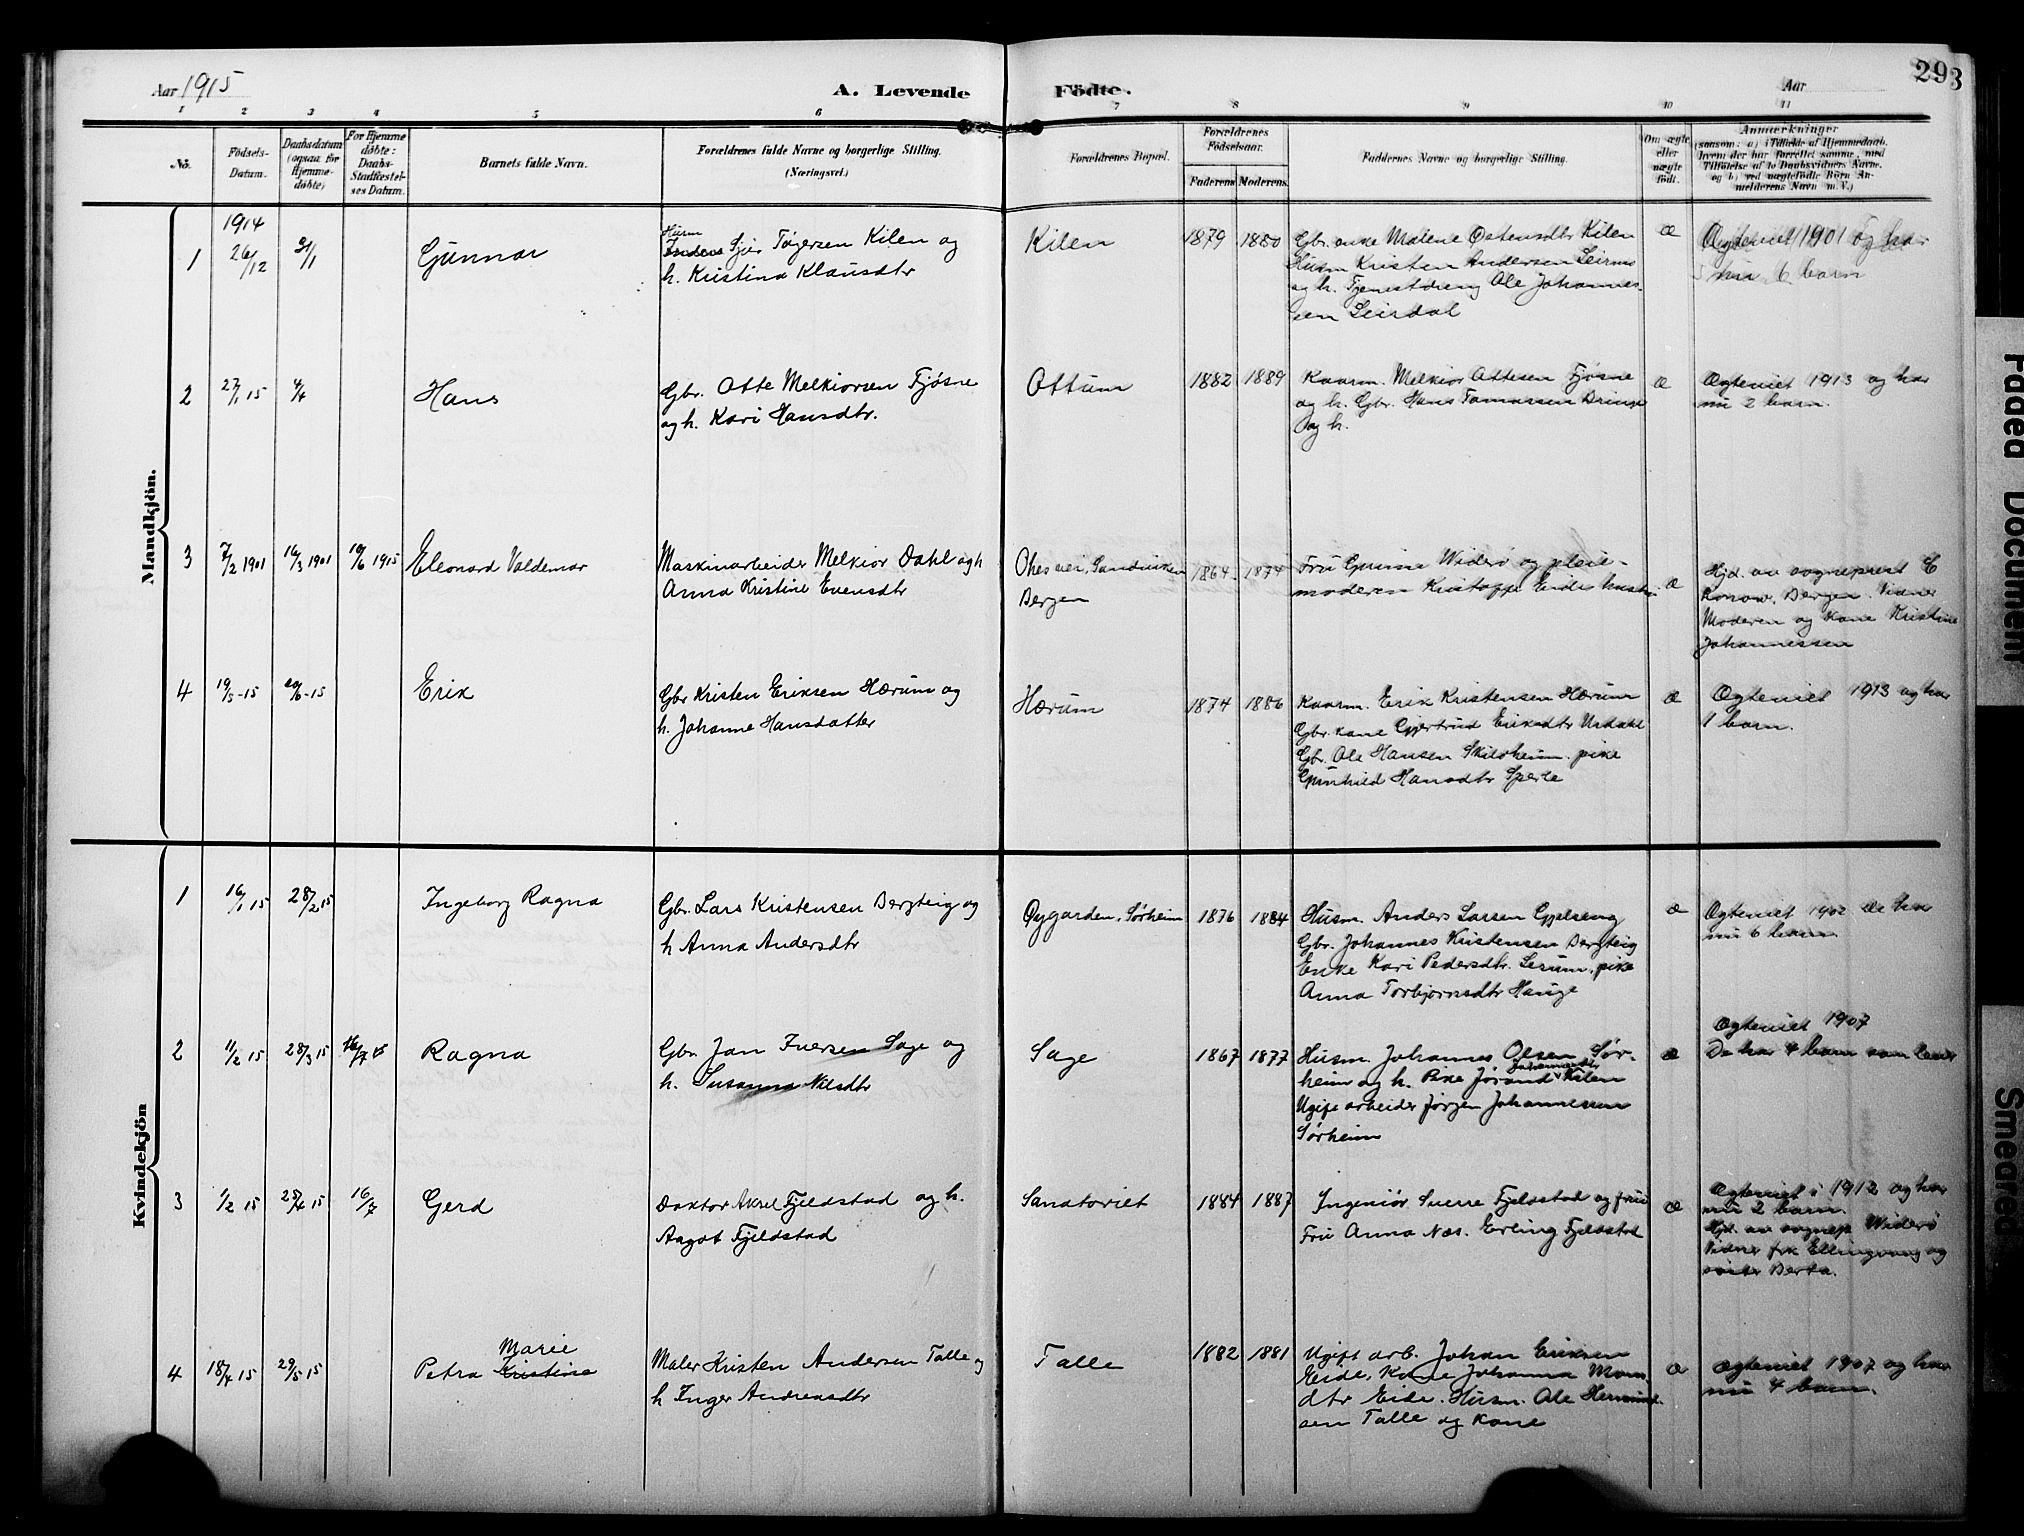 Aar 1915
A. Levende Födte.
Aar
293
1 2 3 4 5 6 7 8 9 10 11
Nö.
Födsels-Datum.
Daabsdatum (ogsaa for Hjemme-döbte)
For Hjemme döbte: Daabs-Stadfæstel-ses Datum.
Barnets fulde Navn.
Forældrenes fulde Navne og borgerlige Stilling. (Næringsvei.)
Forældrenes Bopæl.
Forældrenes Födselsaar.
Faderens Moderens
Faddernes Navne og borgerlige Stilling.
Om ægte eller uægte födt.
Anmærkninger
(saasom: a) i Tilfælde af Hjemmedaab, hvem der har forrettet samme, med Tilföielse af to Daabsvidners Navne, og b) ved uægtefödte Börn An-melderens Navn m. V.)
Mandkjön.
1
1914
26/12
31/1
Gunnar
Husm
Sjur Tøgersen Kilen og
h. Kristina Klausdtr
Kilen
1879 1880
Gbr. enke Malene Ostensdtr Kilen
Husm Kristen Andersen
og h. Tjenestdreng Ole Johannes-
sen Leirdal
æ
Ægteviet 1901 og har
nu 6 barn
2
27/1 15
4/4
Hans
Gbr. Otte Melkiorsen Fjøsne
og h. Kari Hansdtr.
Ottum
1882 1889
Kaarm. Melkior Ottesen Fjøsne
og h. Gbr. Hans Tomassen Bringe
og h.
æ
Ægteviet 1913 og har
nu 2 barn.
3
7/2 1901
16/3 1901
10/6 1915
Eleonard Valdemar
Maskinarbeider Melkior Dahl og h
Anna Kristine Evensdtr
Sandviken
Bergen
1864 1874
Fru Gunine Widerø og pleie-
moderen Kristoffer Eides hustru
æ
Hjd. av sogneprest C
Konow. Bergen. Vidner
Moderen og Kone Kristine
Johannessen
4
19/5-15
20/6-15
Erik
Gbr Kristen Eriksen Hærum og
h. Johanne Hansdatter
Hærum
1874 1886
Kaarm. Erik Kristensen Hærum
Gbr. kone Gjertrud Eriksdtr Urdahl
Gbr. Ole Hansen Skilsheim. pike
Gunhild Hansdtr Sperle
æ
Ægteviet 1913 og har
1 barn.
Kvindekjön
1
16/1 15
28/2 15
Ingeborg Ragna
Gbr. Lars Kristensen Bergteig og
h Anna Andersdtr
Øygarden, Sørheim
1876 1884
Husm. Anders Larsen Gjelseng
Gbr. Johannes Kristensen Bergteig
Enke Kari Pedersdtr. Lerum. pike
Anna Torbjørnsdtr Hauge
æ
Ægteviet 1902 De har
nu 6 barn.
2
11/2 15
28/3 15
16/7 15
Ragna
Gbr. Jan Iversen Sage og
h. Susanna Nilsdtr
Sage
1867 1877
Husm. Johannes Olsen Sør-
heim og h. Pike Jørand Johannesdtr Kilen
Ugift arbeider Jørgen Johannesen
Sørheim
æ
Ægteviet 1907
De har 4 barn som lever
3
1/2 15
25/4 15
16/7
Gerd
Doktor Aksel Fjeldstad og h.
Aagot Fjeldstad
Sanatoriet
1884 1887
Ingeniør Sverre Fjeldstad og frue
Fru Anna Næs. Erling Fjeldstad
æ
Ægteviet i 1912 og har
nu 2 barn.
Hjd. av sognep Widerø
Vidner frk Ellingvang og
søster Berta.
4
18/4 15
29/5 15
Marie
Petra Kristine
Maler Kristen Andersen Talle og
h Inger Andreasdtr
Talle
1882 1881
Ugift arb. Johan Eriksen
Eide, Kone Johanna Mons
dtr Eide. Husm. Ole Hermund-
sen Talle og kone
æ
Ægteviet 1907 og har
nu 4 barn.
Faded Document
Smeared